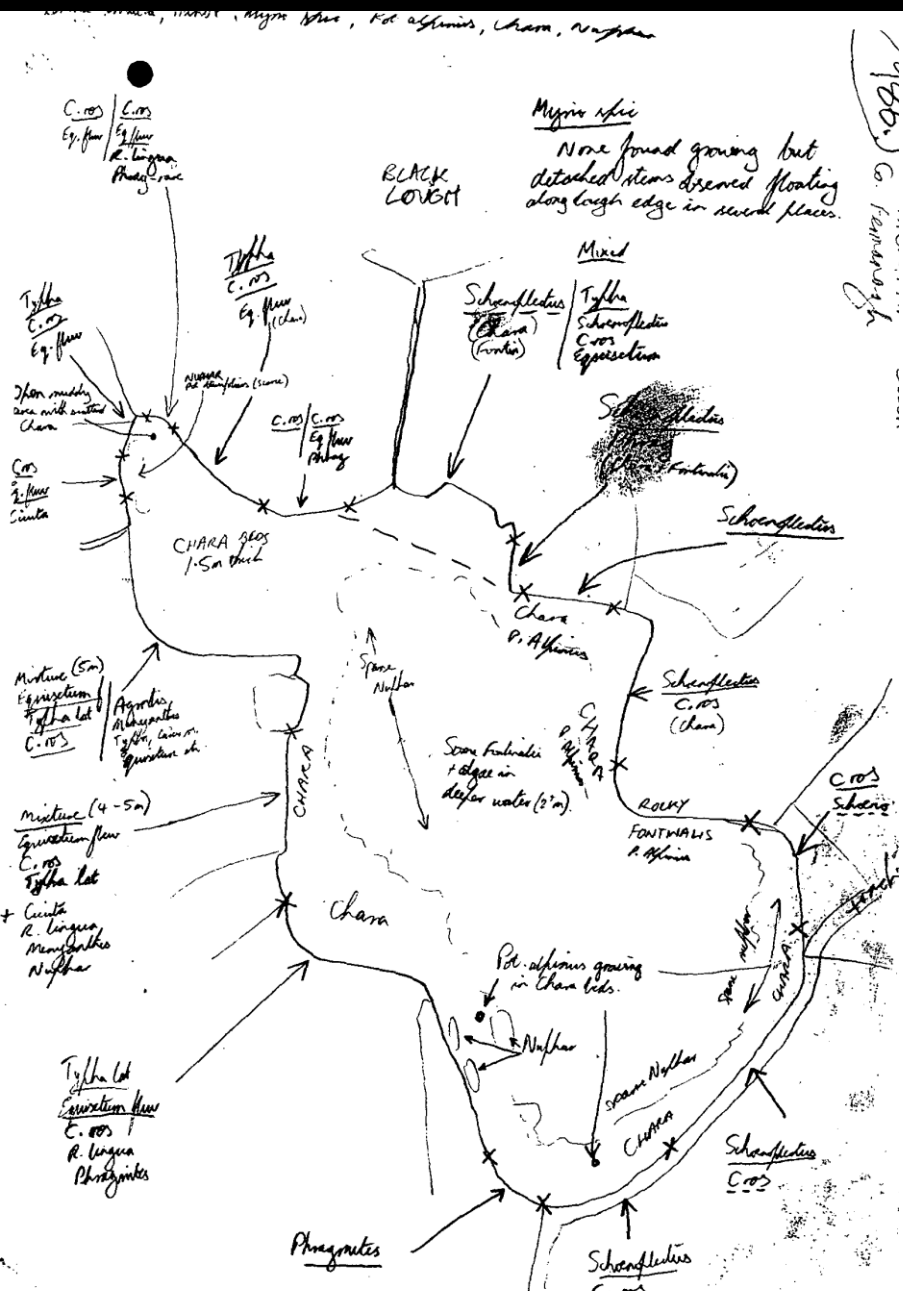 Myrio spic, Pot alpinus, Chara, Nuphar
1986.) Co. Fermanagh
C. ros
Eq. fluv
C. ros
Eq fluv
R. lingua
Phrag - rare
BLACK
LOUGH
Myrio spic
None found growing but
detached stems observed floating
along lough edge in several places.
Typha
C. ros
Eq. fluv
(Chara)
Mixed
Schoenoplectus
(Chara)
(Fontin)
Typha
Schoenoplectus
C ros
Equisetum
Typha
C. ros
Eq. fluv
Open muddy
area with scattered
Chara
NUPHAR
Pot (scarce)
C. ros
C. ros
Eq fluv
Phrag
Schoenoplectus
Fontinalis)
C ros
Eq. fluv
Cicuta
CHARA BEDS
1.5m thick
Schoenoplectus
Chara
P. Alpinus
Sparse
Nuphar
Mixture (5m)
Equisetum f
Typha lat
C. ros
Agrostis
Menyanthes
Typha, Carex r.
Schoenoplectus
C. ros
(Chara)
CHARA
P. Alpinus
CHARA
Some Fontinalis
+ algae in
deeper water (2+m).
ROCKY
FONTINALIS
P. Alpinus
C ros
Schoeno
Mixture (4-5m)
Equisetum fluv
C. ros
Typha lat
+ Cicuta
R. lingua
Menyanthes
Nuphar
Chara
Sparse nuphar
CHARA
Pot. alpinus growing
in Chara beds.
Nuphar
Sparse Nuphar
CHARA
Typha lat
Equisetum fluv
C. ros
R. lingua
Phragmites
Schoenoplectus
C ros
Phragmites
Schoenoplectus
C ros